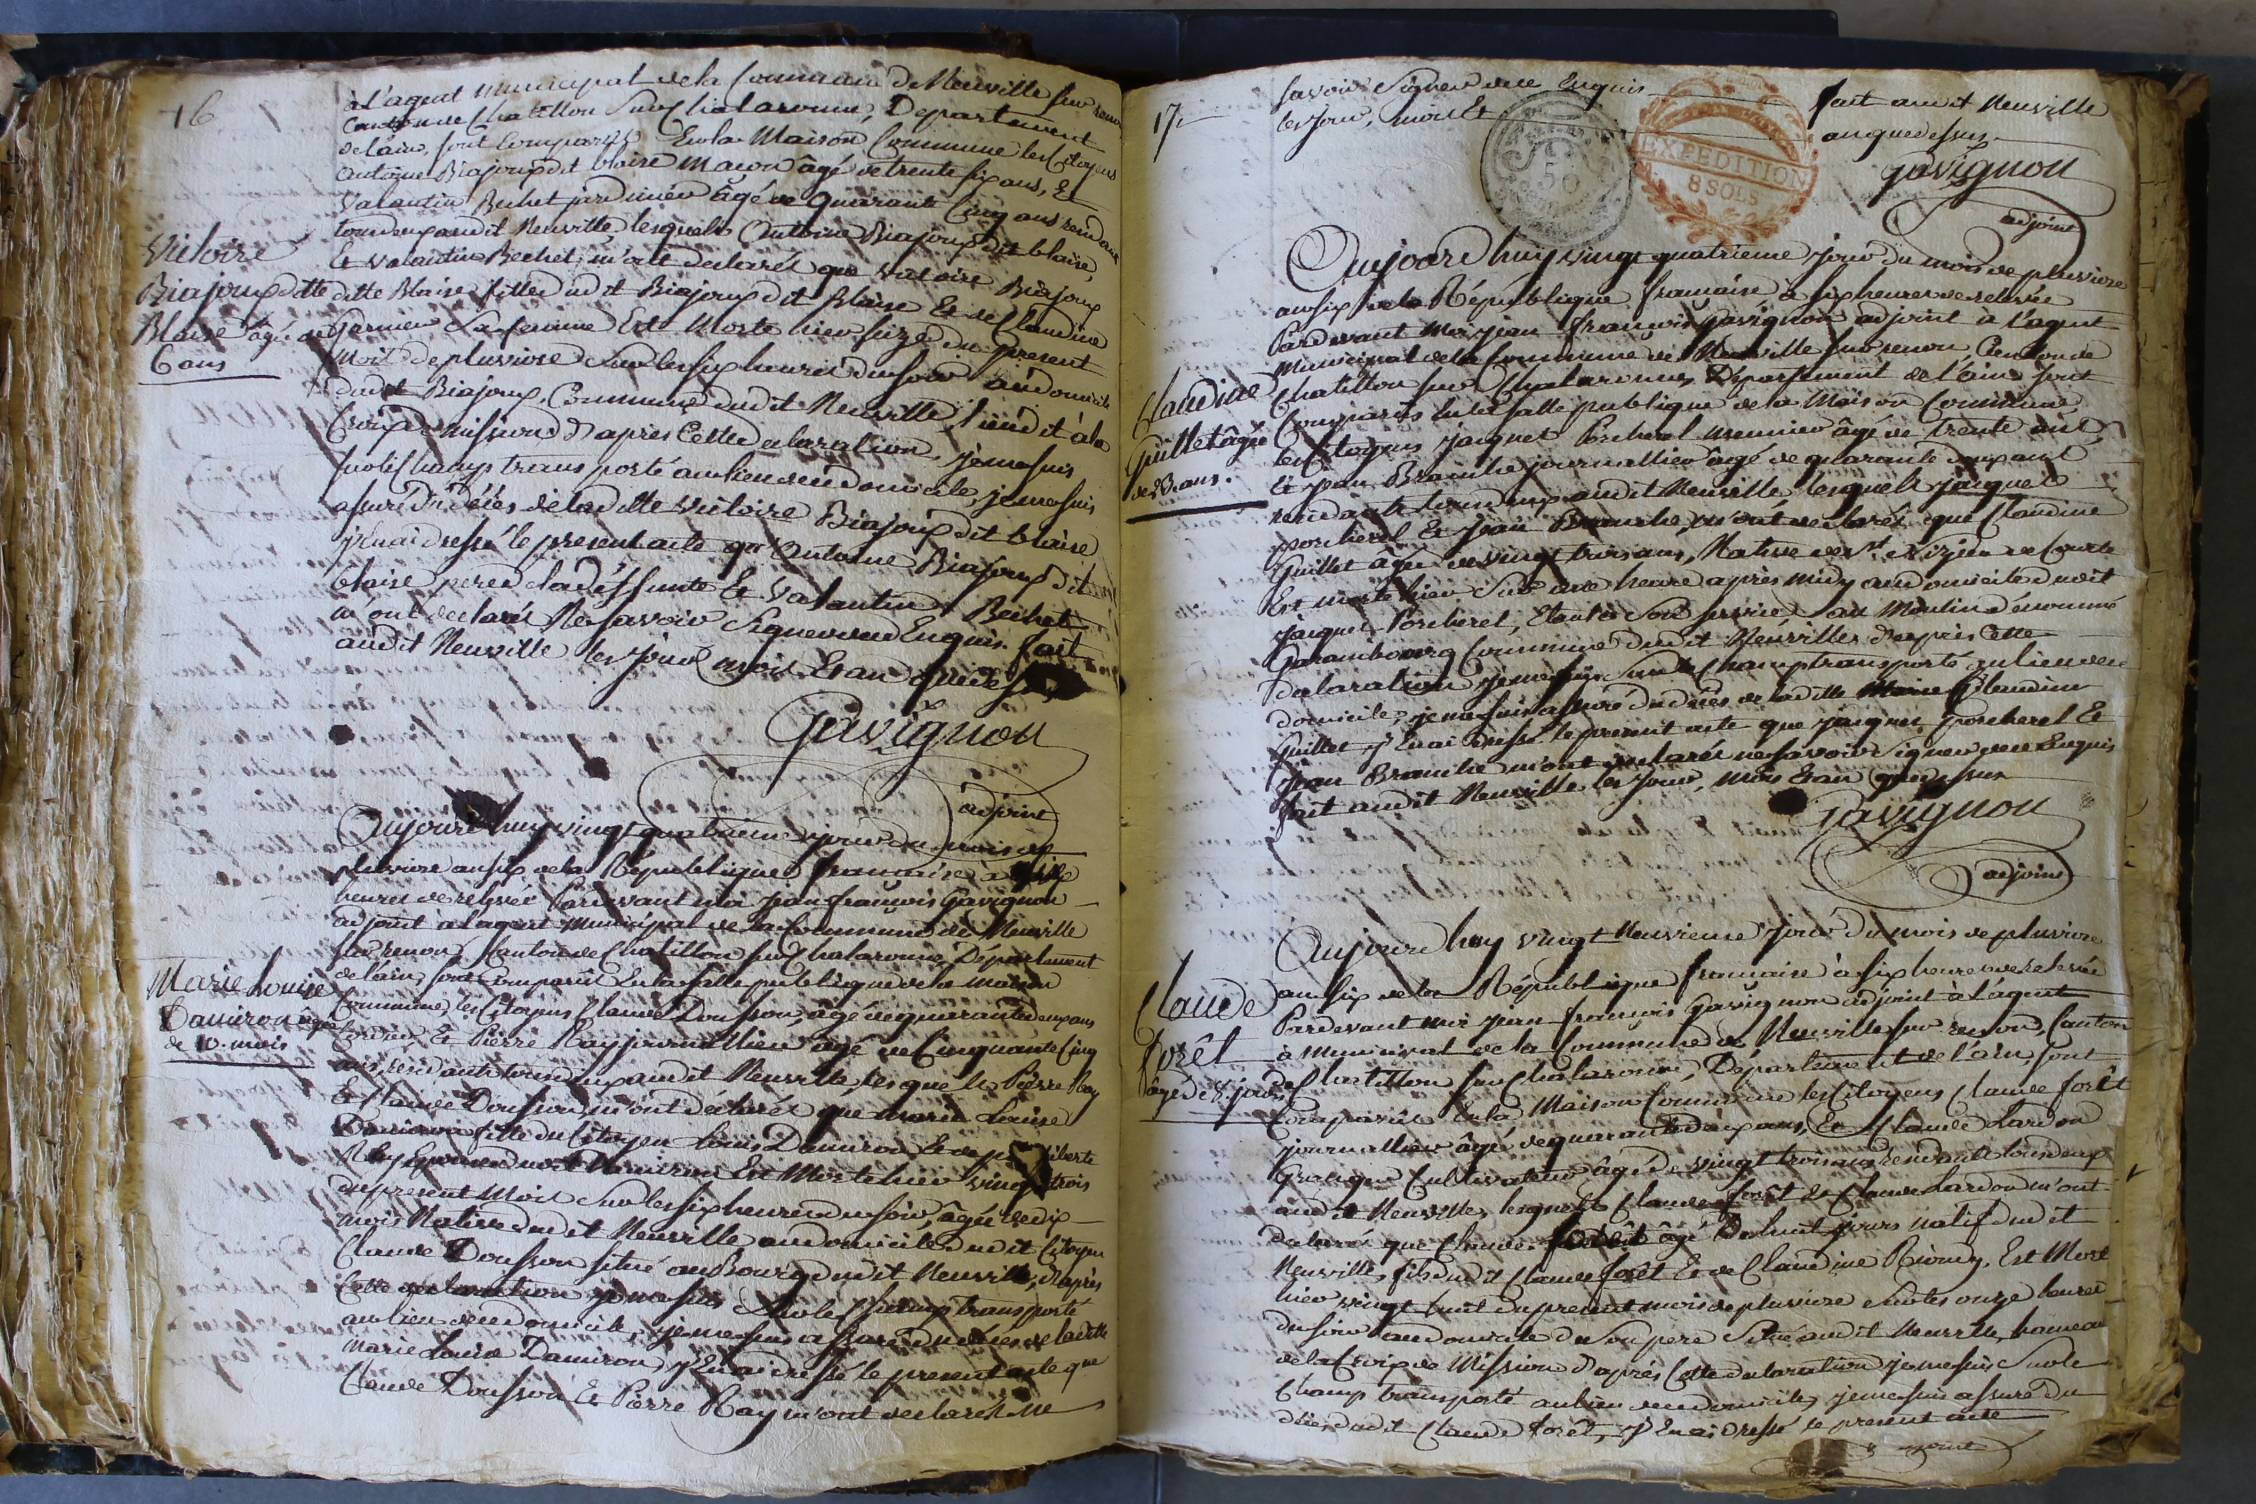 16
à l'agent municipal de la Commune de Neuville sur renon
Canton de Chatillon sur Chalaronne, Departement
de lain, sont Comparus En la Maison Commune les Citoyens
antoine Biajoux dit blaise Maçon âgé de trente six ans, Et
Valantin Bechet jardinier âgé de Quarante Cinq ans residants
tous deux audit Neuville lesquels Antoine Biajoux dit blaise,
Et Valantin Bechet, m'ont declarés que Victoire Biajoux
ditte Blaise fille dudit Biajoux dit Blaise Et de Claudine
Garnier Sa femme Est Morte hier seize du present
Mois de pluviose Sur les six heures du soir au domicile
dudit Biajoux, Commune dudit Neuville, lieu dit à la
Croix de Mission D'apres Cette declaration, je me suis
sur le Champ transporté au lieu dudit domicile, je me suis
assuré du déces de laditte Victoire Biajoux dit blaise
j'En ai dressé le present acte qu'Antoine Biajoux dit
blaise pere de la deffunte Et Valantin Bechet
m'ont declarés Ne savoir Signer de ce Enquis. fait
audit Neuville les jour mois Et an que dessus
Victoire
Biajoux ditte
Blaise âgé de
6 ans
Gavignon
adjoint
Aujourd'huy vingt quatrieme jour du mois de
pluviose an six de la République francaise à six
heures de relevée Pardevant moi jean françois Gavignon
adjoint à l'agent Municipal de la Commune de Neuville
sur renon, Canton de Chatillon sur Chalaronne Département
de lain, sont Comparût En la salle publique de la maison
Commune, les Citoyens Claude Dousson, âgé de quarante deux ans
Cordier, Et Pierre Ray journallier âgé de Cinquante Cinq
ans, residants tous deux audit Neuville, lesquels Pierre Ray
Et Claude Dousson m'ont déclarés que marie Louise
Damiron fille du Citoyen Louis Damiron Et de
Ray Epouse dudit Damiron Est Morte hier vingt trois
du present Mois Sur les six heures du soir, âgée de dix
mois Native dudit Neuville au domicile dudit Citoyen
Claude Dousson situé au Bourg dudit Neuville, d'après
Cette declaration je me suis Sur le Champ transporté
au lieu dudit domicile, je me suis assuré du déces de laditte
Marie Louise Damiron, j'En ai dressé le present acte que
Claude Dousson Et Pierre Ray m'ont declarés Ne
Marie Louise
Damiron agée
de 10. mois
17
savoir Signer de ce Enquis fait audit Neuville
les Jour, mois Et an que dessus
50
EXPEDITION
8 SOLS
Gavignon
adjoint
Aujourd'huy vingt quatrième jour du mois de pluviose
an six de la République francaise à six heures de relevée
Pardevant Moi jean françois Gavignon adjoint à l'agent
Municipal de la Commune de Neuville sur renon, Canton de
Chatillon sur Chalaronne, Département de l'ain sont
Comparus En la salle publique de la Maison Commune,
les Citoyens jacques Porcherel meunier âgé de trente ans
Et jean Branche journallier âgé de quarante deux ans
residants tous deux audit Neuville, lesquels jacques
porcherel Et jean Branche, m'ont declarés que Claudine
Guillet âgée de vingt trois ans, Native de St Nizier le Courte
Est morte hier Sur une heure après midy au domicile dudit
jacques Porcherel, Etant à Son service au Moulin dénommé
Garambourg Commune dudit Neuville, D'après Cette
declaration je me suis Sur le Champ transporté au lieu dudit
domicile, je me suis assuré du déces de laditte Claudine
Guillet j'En ai dressé le present acte que jacques porcherel Et
jean Branche m'ont declarés ne savoir Signer de ce Enquis
fait audit Neuville les Jour, mois Et an que dessus
Claudine
Guillet âgée
de 23. ans.
Gavignon
adjoint
Aujourd'huy vingt Neuvieme Jour du mois de pluviose
an six de la République francaise à six heures de relevée
Pardevant moi jean françois Gavignon adjoint à l'agent
à Municipal de la Commune de Neuville sur renon, Canton
de Chatillon sur Chalaronne, Département de l'ain, sont
Comparûs En la Maison Commune les Citoyens Claude forêt
journallier âgé de quarante deux ans, Et Claude Lardon
Granger Cultivateur âgé de vingt trois ans residants tous deux
audit Neuville, lesquels Claude forêt Et Claude Lardon m'ont
declarés que Claude forêt âgé De huit jours natif dudit
Neuville, fils dudit Claude forêt Et de Claudine Rioudy, Est Mort
hier vingt huit du present mois de pluviose Sur les onze heures
du soir au domicile de Son pere Situé audit Neuville, hameau
de la Croix de Mission d'après Cette declaration je me suis Sur le
Champ transporté au lieu dudit domicile, je me suis assuré du
déces dudit Claude forêt, j'En ai dressé le present acte
Claude
forêt
âgé de 8. jours